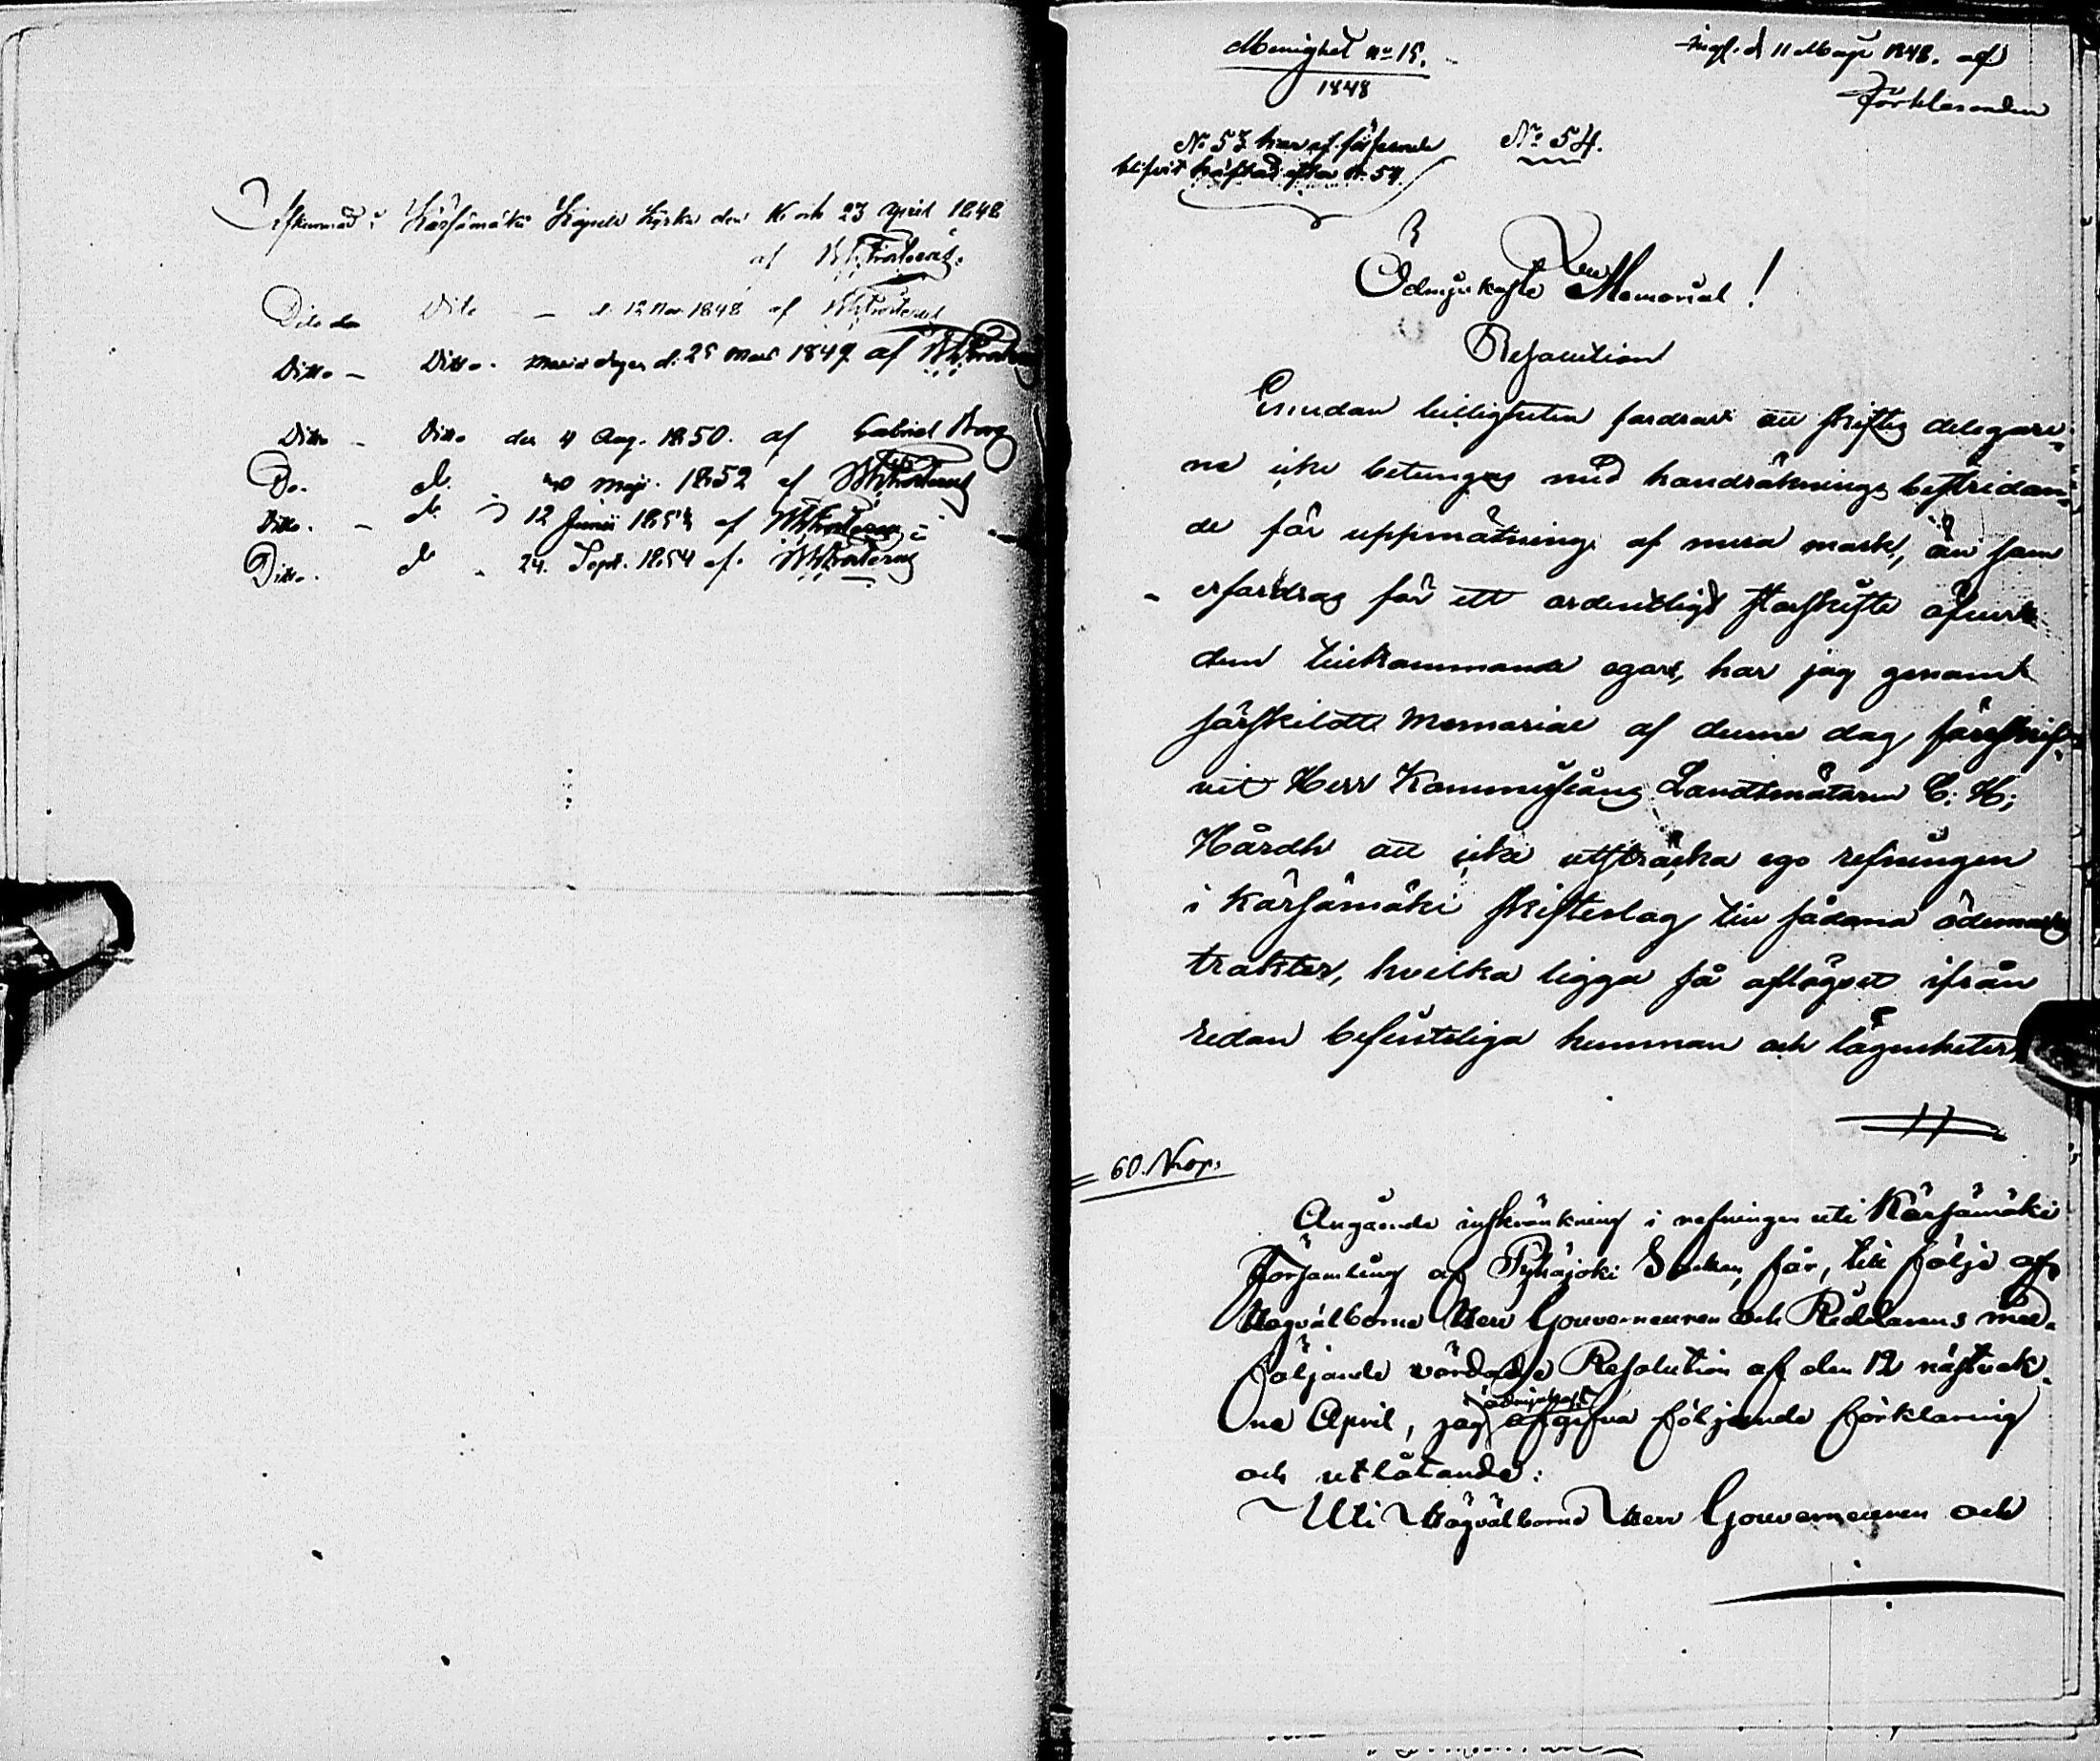 Afkunnad i Kärsämäki Kapells Kyrka den 16 och 23 April 1848
af
Dito do Dito – d. 12 Nov. 1848 af
Ditto – Ditto. Mariæ dagen d. 25 Mars 1849 af
Ditto – Ditto den 4 Aug. 1850. af Gabriel Borg
Do. d. Maji. 1852 af
Ditto. – d. 12 Junii 1854 af
Ditto. d. 24. Sept. 1854 af.
Menighet No 15.
1848
ingf. d 11 Maji 1848. af
förklaranden
No 53 har af förseende
blifvit häftad efter No 54.
No 54.
Ödmjukaste Memorial!
Resolution
Emedan billigheten fordrar att skiftes delegare-
ne icke betungas med handräknings bestridan-
de för uppmätning af mera mark, än som
erfordras för ett ordentligt storskifte åfvense
dem tillkommande egor, har jag genom
särskildt Memorial af denne dag föreskrif-
vit Herr Kommissions Landtmätaren C. H;
Hårdh att icke utsträcka ego refningen
i Kärsämäki skifteslag till sådana ödemarks
trakter, hvilka ligga så aflägset ifrån
redan befinteliga hemman och lägenheter,
60. Kop.
Angående inskränkning i refningen uti Kärsämäki
Församling af Pyhäjoki Socken, får, till följe af
Högvälborne Herr Gouverneuren och Riddarens med-
följande vördade Resolution af den 12 nästvek-
ne April, jag ödmjukast afgifva följande förklaring
och utlåtande:
Uti Högvälborne Herr Gouverneuren och